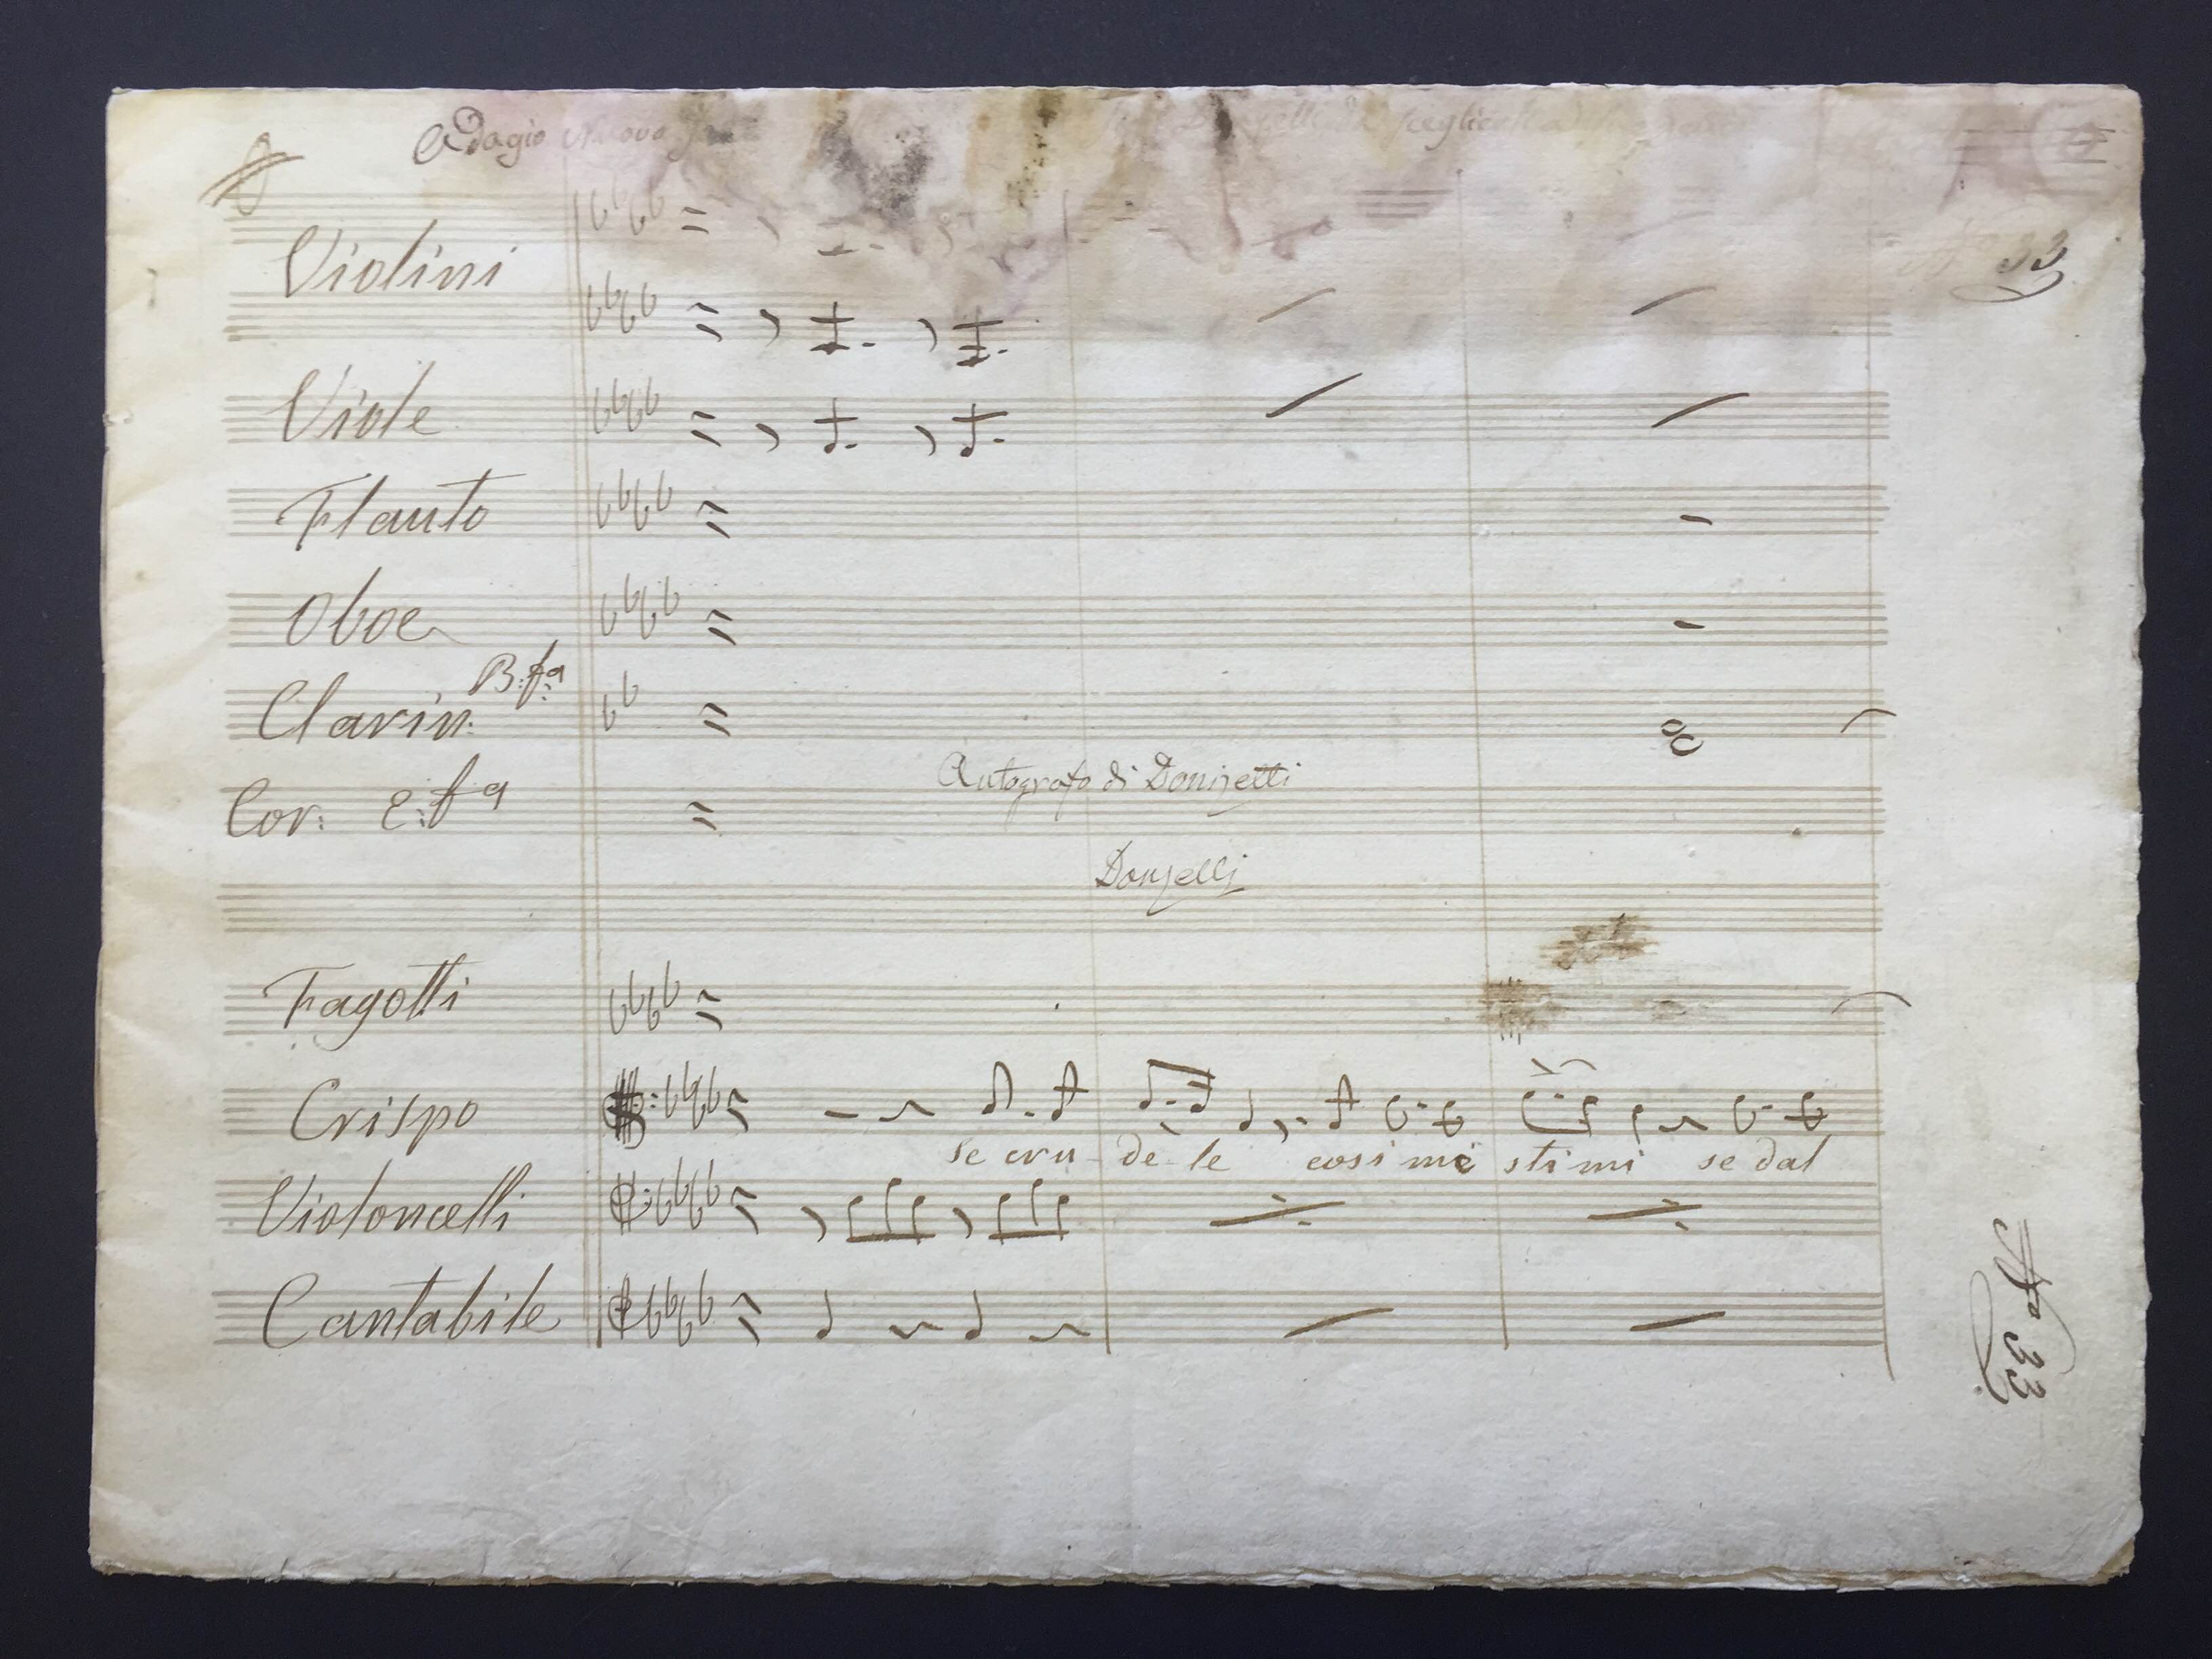 Adagio Nuovo
N° 33
Violini
Viole
Flauto
Oboe
Clarin: B:fa
Cor: E:fa
Autografo di Donizetti
Donzelli
Fagotti
Crispo
se cru- de- le così mi e stimi se dal
Violoncelli
Cantabile
N° 33